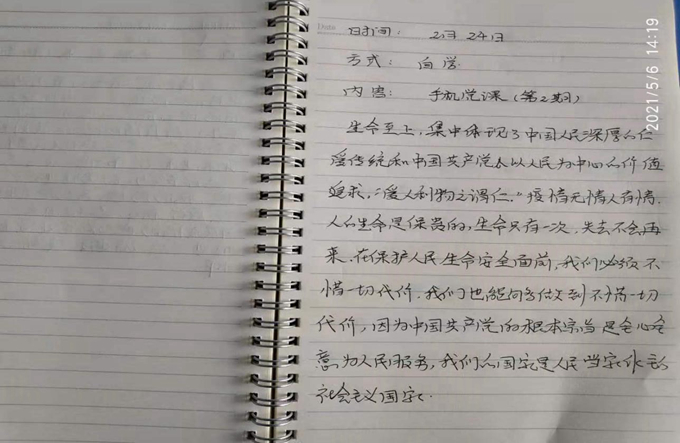 Date
时间: 2月24日
方式: 自学
内容: 手机党课(第2期)
生命至上,集中体现了中国人民深厚的仁
爱传统和中国共产党人以人民为中心的价值
追求,"爱人利物之谓仁."疫情无情人有情.
人的生命是保贵的,生命只有一次,失去不会再
来.在保护人民生命安全面前,我们必须不
惜一切代价,我们也能够做到不惜一切
代价,因为中国共产党的根本宗旨是全心全
意为人民服务,我们的国家是人民当家作主的
社会主义国家.
2021/5/6 14:19